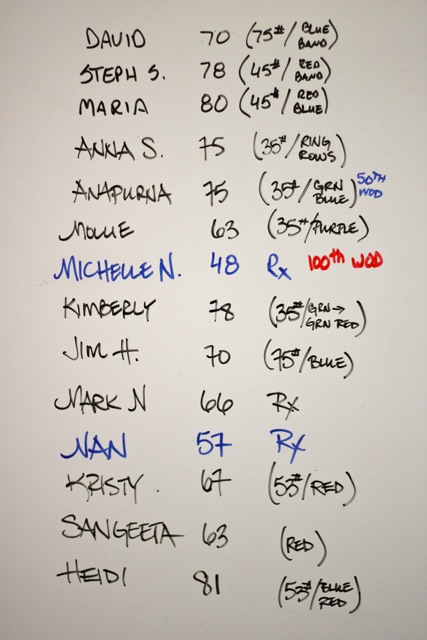 DAVID 70 (75#/BLUE BAND)
STEPH S. 78 (45#/RED BAND)
MARIA 80 (45#/RED BLUE)
ANNA S. 75 (35#/RING ROWS)
ANAPURNA 75 (35#/GRN BLUE) 50TH WOD
MOLLIE 63 (35#/PURPLE)
MICHELLE N. 48 Rx 100th WOD
KIMBERLY 78 (35#/GRN→ GRN RED)
JIM H. 70 (75#/BLUE)
MARK N 66 Rx
NAN 57 Rx
KRISTY. 67 (53#/RED)
SANGEETA 63 (RED)
HEIDI 81 (53#/BLUE RED)